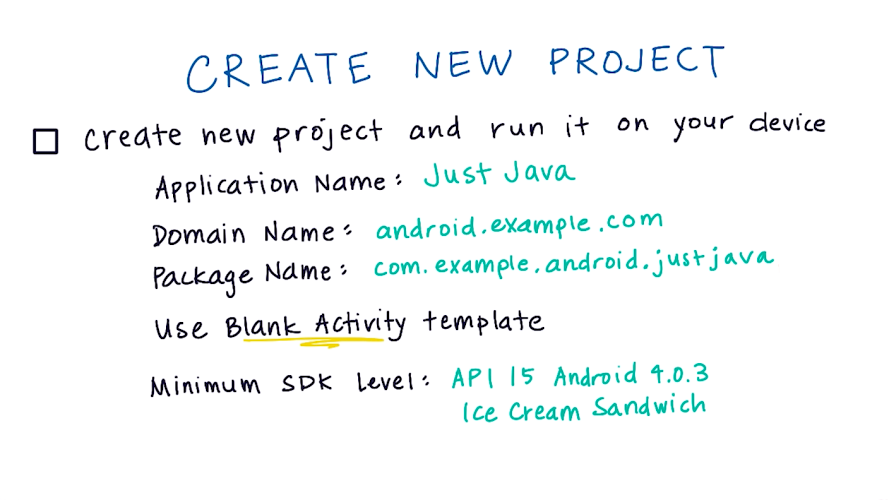 CREATE NEW PROJECT
Create new project and run it on your device
Application Name: Just Java
Domain Name: android.example.com
Package Name: com.example.android.justjava
Use Blank Activity template
Minimum SDK Level: API 15 Android 4.0.3
Ice Cream Sandwich